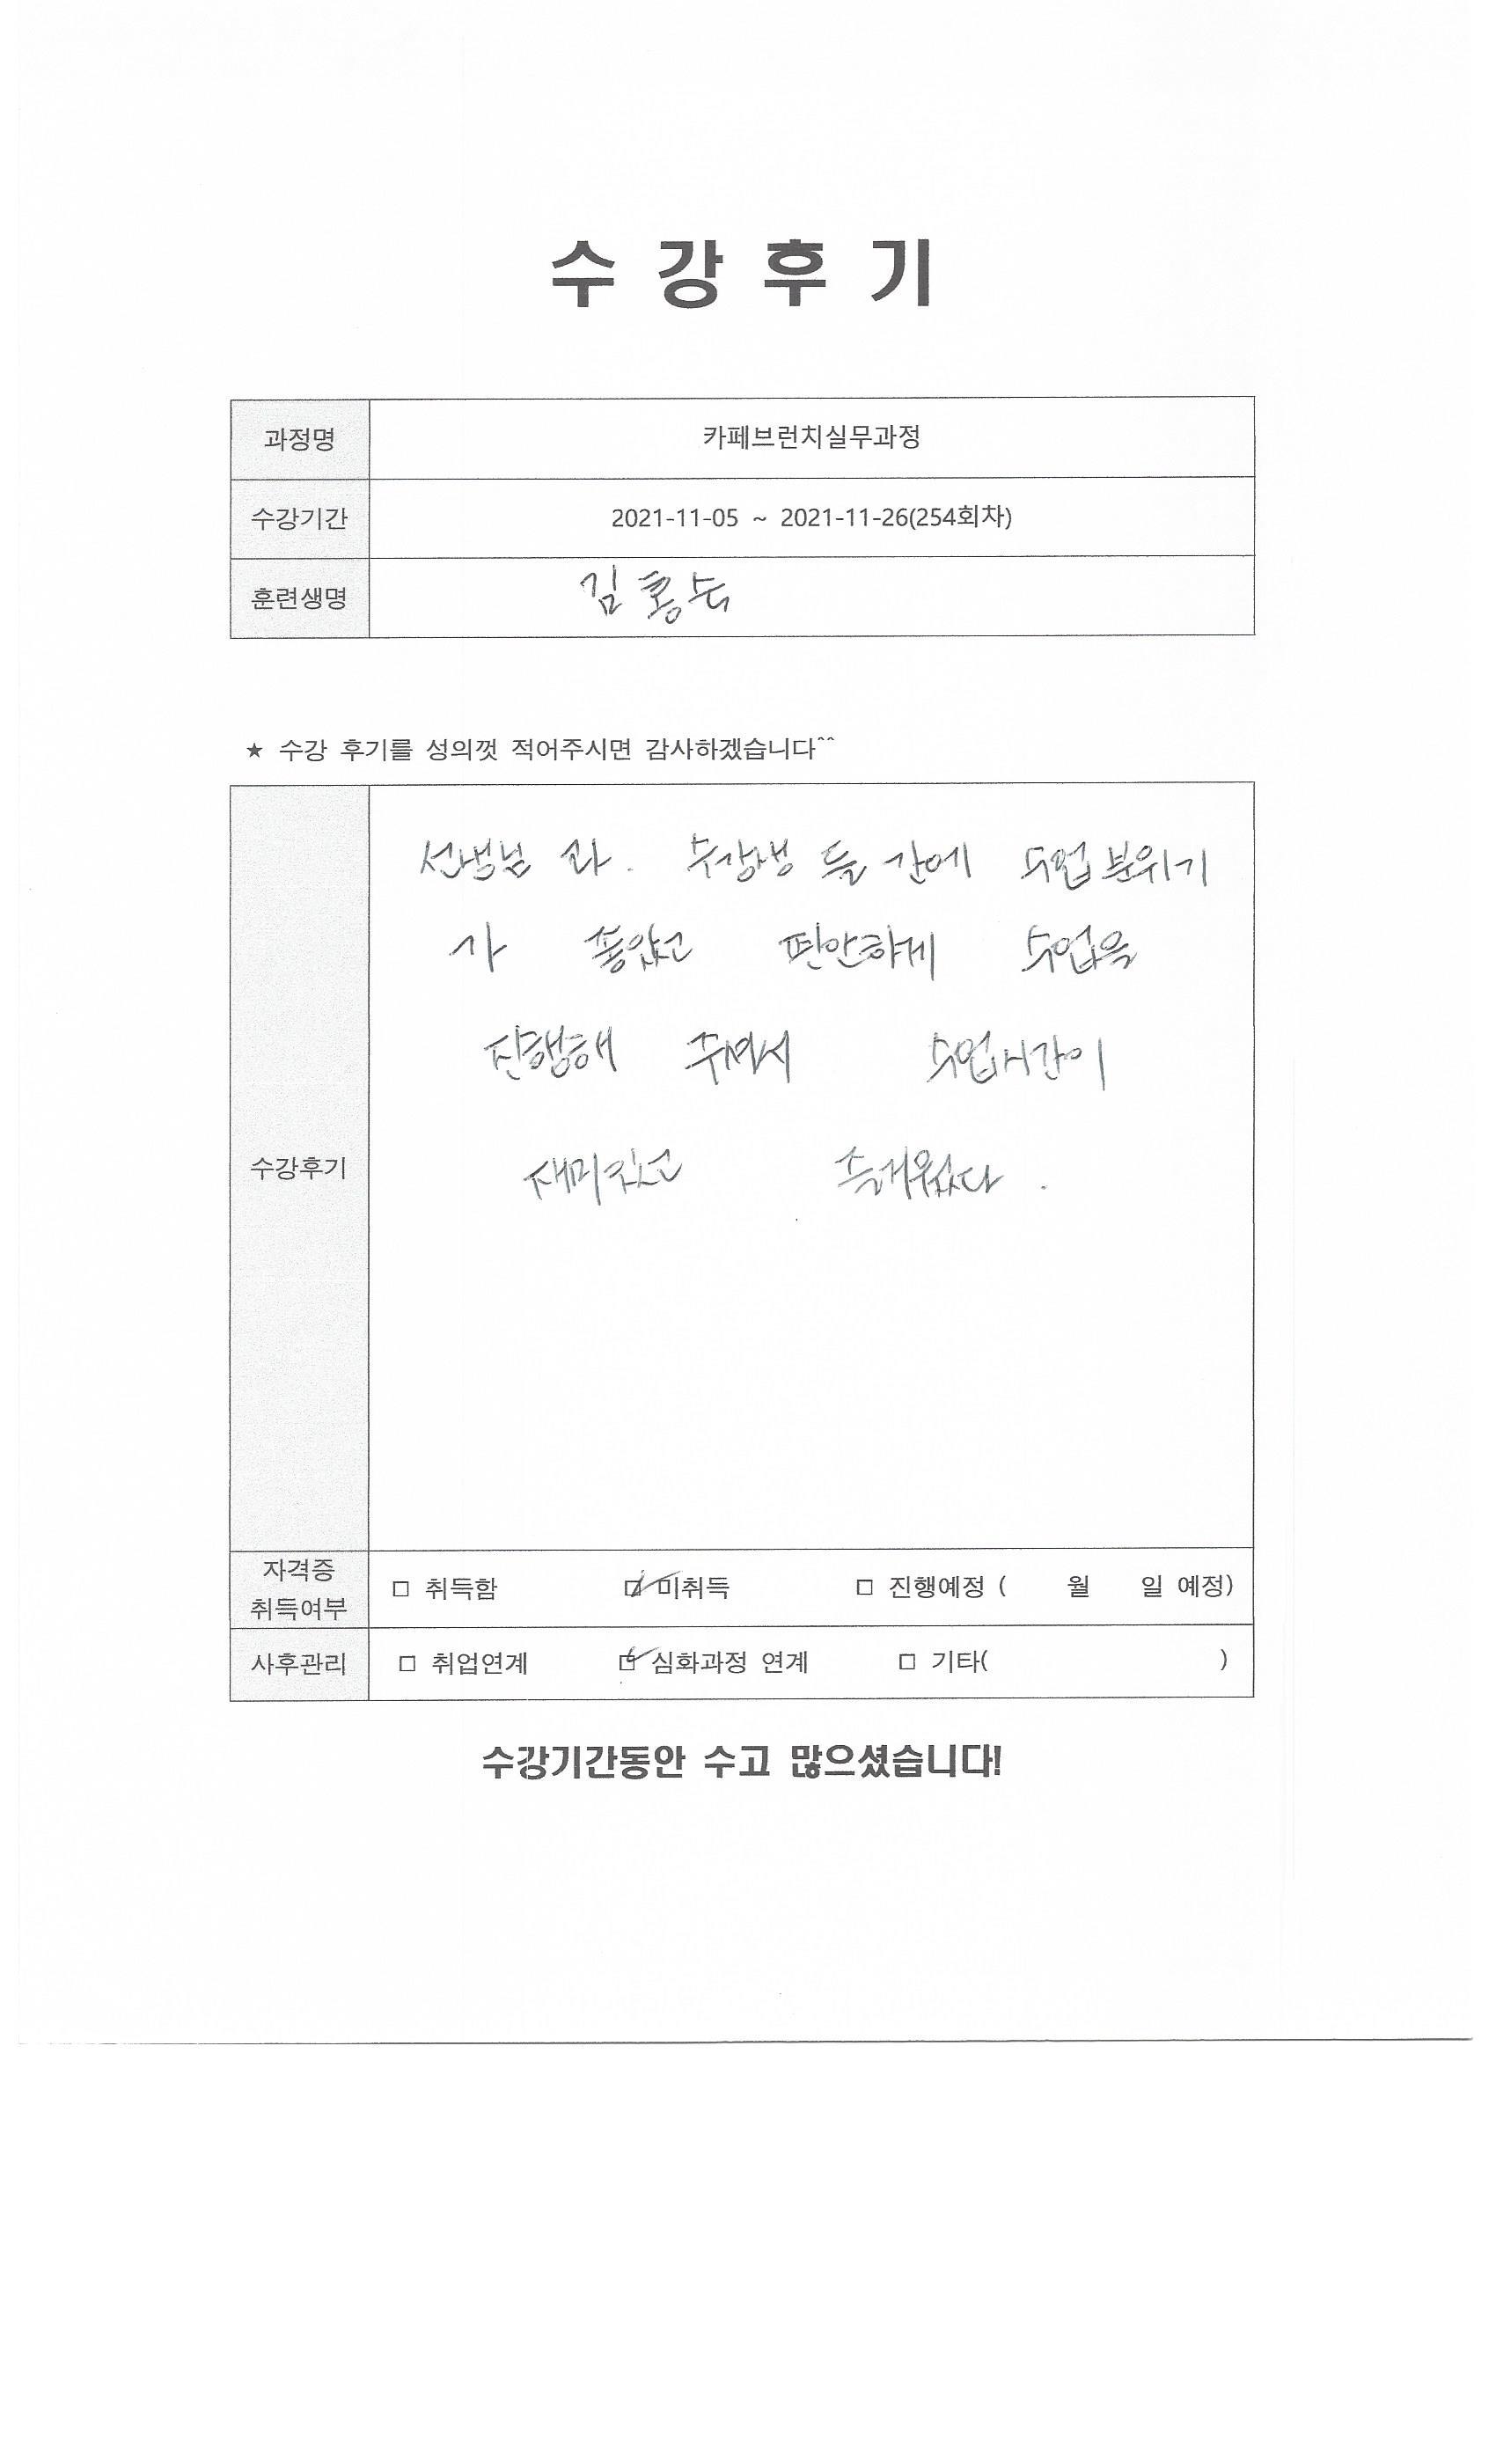 수 강 후 기
과정명 카페브런치실무과정
수강기간 2021-11-05 ~ 2021-11-26(254회차)
훈련생명 김홍
★ 수강 후기를 성의껏 적어주시면 감사하겠습니다^^
선생님 과. 수강생 들 간에 수업 분위기
가 좋았고 편안하게 수업을
진행해 주셔서 수업시간이
수강후기
재미있었고 즐거웠다.
자격증
취득여부
□ 취득함 ☑ 미취득 □ 진행예정 ( 월 일 예정)
사후관리 □ 취업연계 ☑ 심화과정 연계 □ 기타( )
수강기간동안 수고 많으셨습니다!